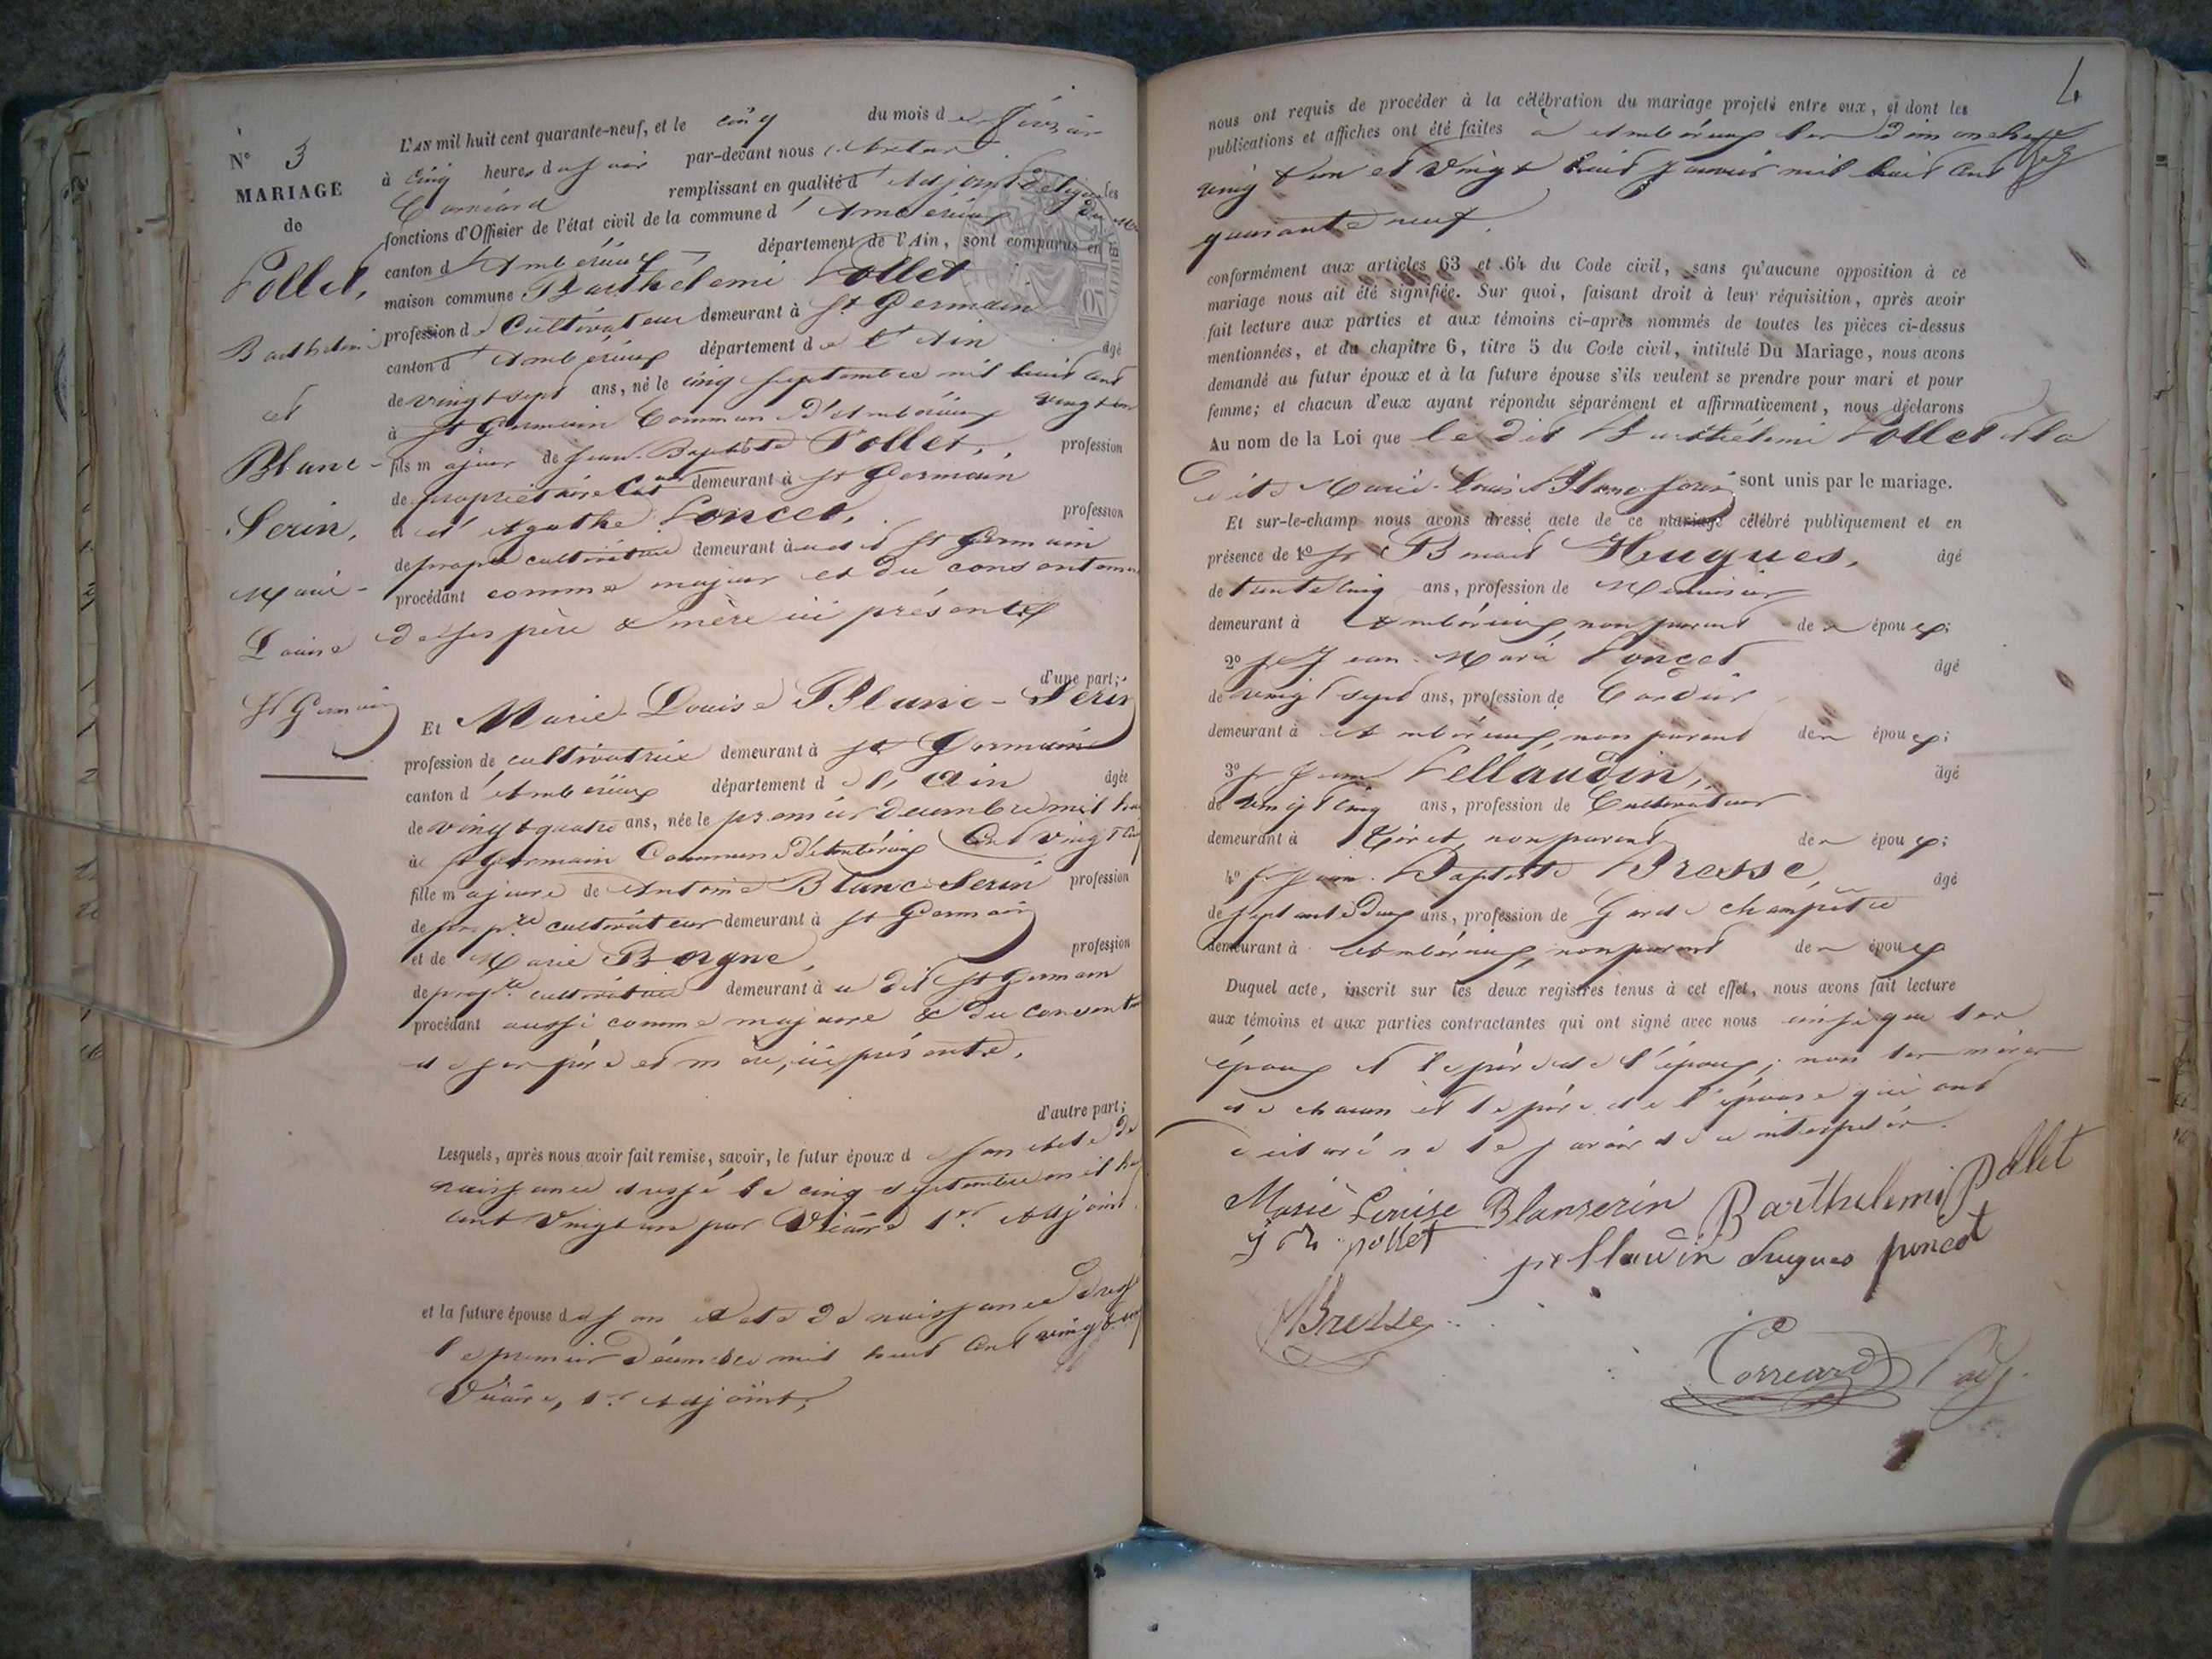 N° 3
MARIAGE
de
Pollet,
Barthelemi
et
Blanc-
Serin,
Marie-
Louise
St Germain
L'AN mil huit cent quarante-neuf, et le cinq du mois de février
à cinq heures du soir par-devant nous
remplissant en qualité d'Adjoint délégué les
fonctions d'Officier de l'état civil de la commune d'Ambérieux
canton d'Ambérieux, département de l'Ain, sont comparus en
maison commune Barthelemi Pollet
profession de Cultivateur demeurant à St Germain
canton d'Ambérieux département de l'Ain âgé
de vingt sept ans, né le cinq septembre mil huit cent vingt un
à St Germain Commune d'Ambérieux
fils majeur de Jean-Baptiste Pollet, profession
de propriétaire demeurant à St Germain
et d'Agathe Poncet, profession
de cultivatrice demeurant à St Germain
procédant comme majeur et du consentement
de ses père & mère ici présents
d'une part;
Et Marie-Louise Blanc-Serin
profession de cultivatrice demeurant à St Germain
canton d'Ambérieux département de l'Ain âgée
de vingt quatre ans, née le premier Décembre mil huit
à St Germain Commune d'Ambérieux Cent vingt
fille majeure de Antoine Blanc-Serin profession
de prop.re cultivateur demeurant à St Germain
et de Marie Borgne, profession
de prop.re cultivatrice demeurant au dit St Germain
procédant aussi comme majeure & du consente
de ses père et mère, ici présents,
d'autre part;
Lesquels, après nous avoir fait remise, savoir, le futur époux de son acte de
naissance dressé le cinq septembre mil huit
cent vingt un par 1er Adjoint
et la future épouse de son acte de naissance
le premier décembre mil huit cent vingt
1er Adjoint,
4
nous ont requis de procéder à la célébration du mariage projeté entre eux, et dont les
publications et affiches ont été faites à Ambérieux les dimanches
vingt un et vingt huit janvier mil huit cent
quarante neuf,
conformément aux articles 63 et 64 du Code civil, sans qu'aucune opposition à ce
mariage nous ait été signifiée. Sur quoi, faisant droit à leur réquisition, après avoir
fait lecture aux parties et aux témoins ci-après nommés de toutes les pièces ci-dessus
mentionnées, et du chapitre 6, titre 5 du Code civil, intitulé Du Mariage, nous avons
demandé au futur époux et à la future épouse s'ils veulent se prendre pour mari et pour
femme; et chacun d'eux ayant répondu séparément et affirmativement, nous déclarons
Au nom de la Loi que le dit Barthélemi Pollet et la
dite Marie-Louise Blanc Serin sont unis par le mariage.
Et sur-le-champ nous avons dressé acte de ce mariage célébré publiquement et en
présence de 1° Sr Hugues, âgé
de trente cinq ans, profession de Menuisier
demeurant à Ambérieux, non parent des époux;
2° Sr Jean-Marie Poncet âgé
de vingt sept ans, profession de
demeurant à Ambérieux, non parent des époux;
3° Sr Pellaudin, âgé
de vingt cinq ans, profession de Cultivateur
demeurant à non parent des époux;
4° Sr Jean-Baptiste Bresse, âgé
de septante deux ans, profession de Garde champêtre
demeurant à Ambérieux, non parent des époux
Duquel acte, inscrit sur les deux registres tenus à cet effet, nous avons fait lecture
aux témoins et aux parties contractantes qui ont signé avec nous ainsi que les
époux et le père de l'époux; non les mères
de chacun et le père de l'épouse qui ont
déclaré ne le savoir de ce
Marie Louise Blanserin Barthelemi Pollet
pollet pellaudin hugues poncet
Bresse
Correard adj.